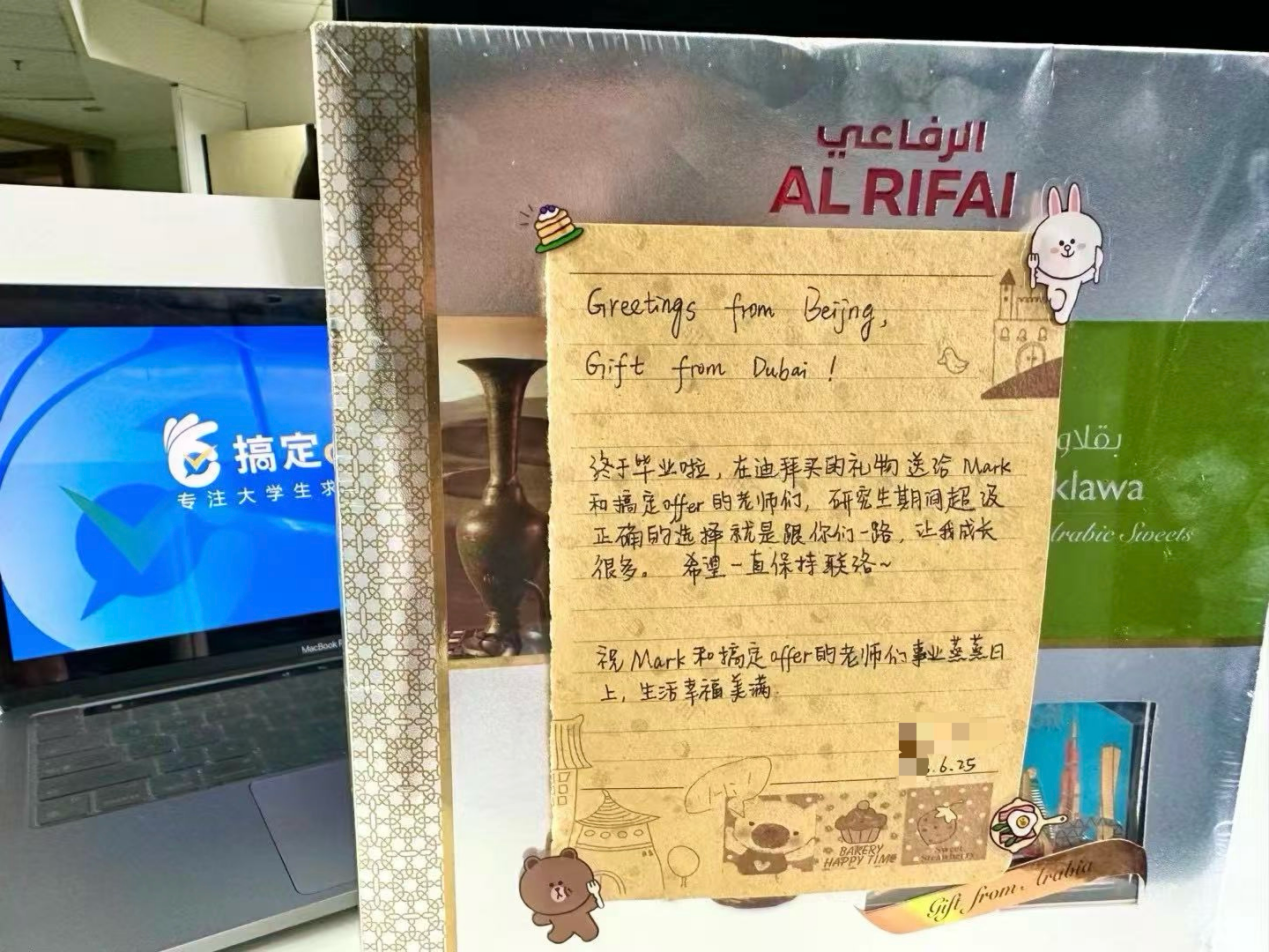 الرفاعي
AL RIFAI
Greetings from Beijng,
Gift from Dubai !
终于毕业啦，在迪拜买的礼物送给 Mark
和搞定offer的老师们，研究生期间超级
正确的选择就是跟你们一路，让我成长
很多。 希望一直保持联络~
祝 Mark 和搞定offer的老师们事业蒸蒸日
上，生活幸福美满
.6.25
BAKERY
HAPPY TIME
Sweet
Strawberry
搞定
专注大学生求
MacBook
بقلاو
klawa
Arabic Sweets
Gift from Arabia